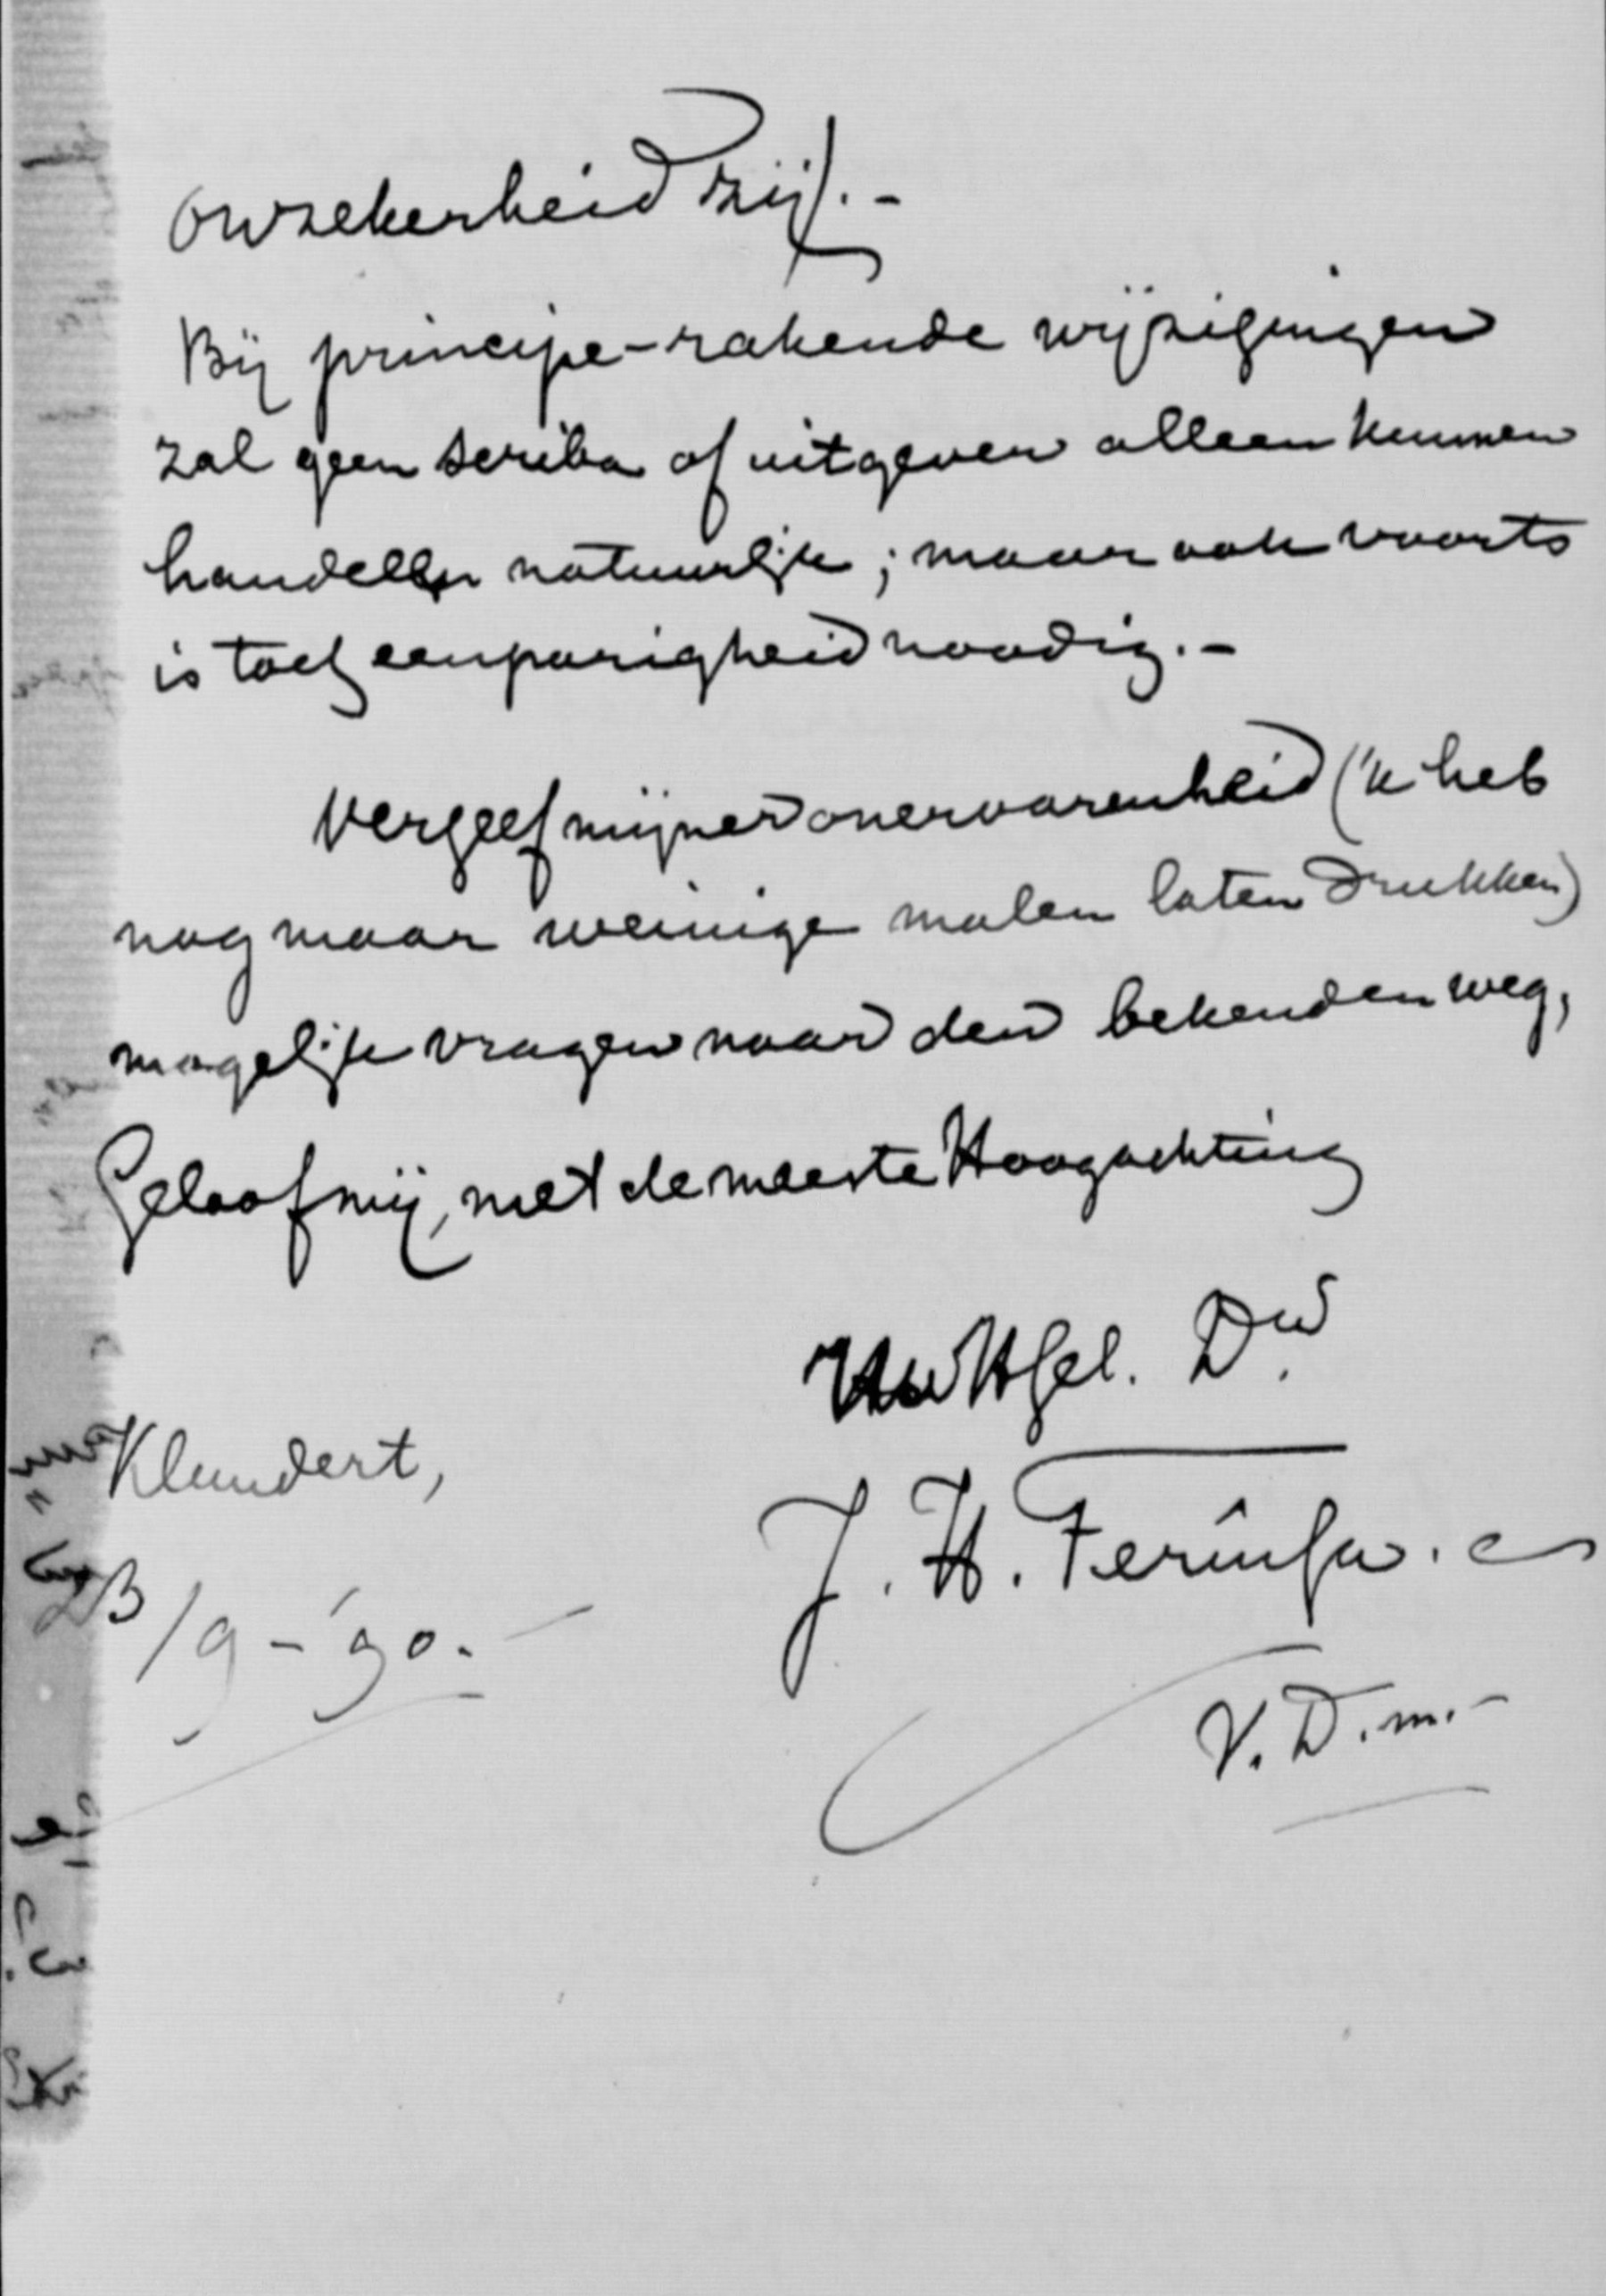 onzekerheid zij). -
Bij principe-rakende wijzigingen
zal geen scriba of uitgever alleen kunnen
handelen natuurlijk; maar ook voorts
is toch eenparigheid noodig. -
Vergeef mijner onervarenheid ('k heb
nog maar weinige malen laten drukken)
mogelijk vragen naar den bekenden weg,
Geloof mij, met de meeste Hoogachting
UwHGel. Dw.
Klundert,
J. H. Feringa.
23/9-'90. -
V. D. m. -